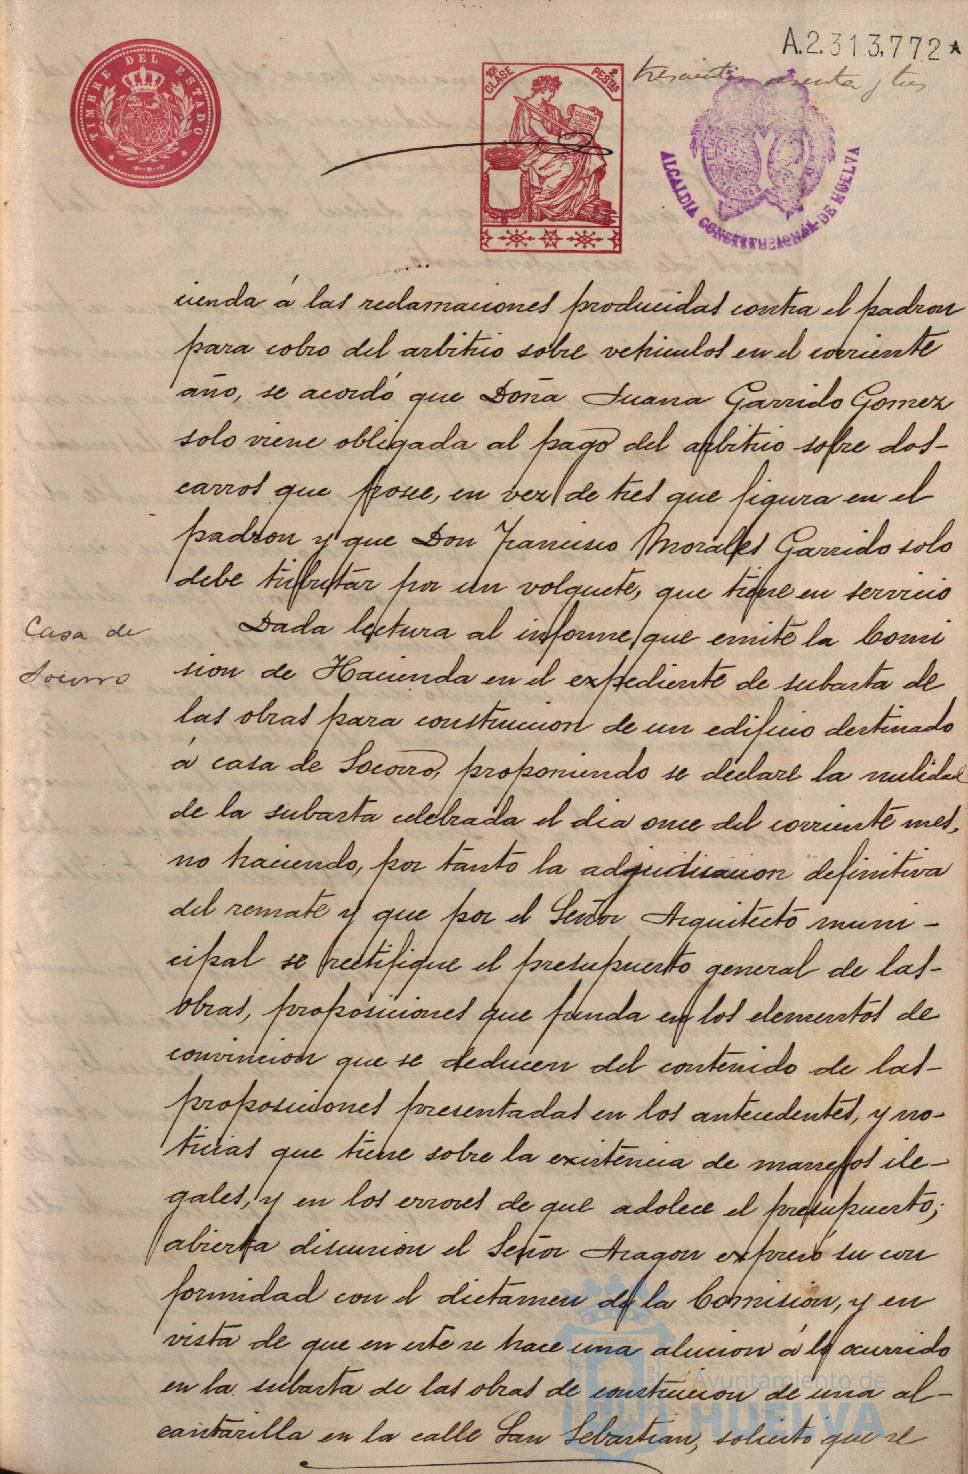 A.2.313,772*
trescientos sesenta y tres
TIMBRE DEL ESTADO
10ª CLASE
2 PESETAS
CODIGO
ALCALDIA CONSTITUCIONAL DE HUELVA
cienda á las reclamaciones producidas contra el padron
para cobro del arbitrio sobre vehiculos en el corriente
año, se acordó que Doña Juana Garrido Gomez
solo viene obligada al pago del arbitrio sobre dos-
carros que posee, en vez de tres que figura en el
padron y que Don Francisco Morales Garrido solo
debe tributar por un volquete, que tiene en servicio
Casa de
Socorro
Dada lectura al informe que emite la Comi
sion de Hacienda en el expediente de subasta de
las obras para construccion de un edificio destinado
á casa de Socorro, proponiendo se declare la nulidad
de la subasta celebrada el dia once del corriente mes,
no haciendo, por tanto la adjudicacion definitiva
del remate y que por el Señor Arquitecto muni-
cipal se rectifique el presupuesto general de las-
obras, proposiciones que funda en los elementos de
convincion que se deducen del contenido de las-
proposiciones presentadas en los antecedentes, y no-
ticias que tiene sobre la existencia de manejos ile-
gales, y en los errores de que adolece el presupuesto;
abierta discusion el Señor Aragon expresó su con
formidad con el dictamen de la Comision, y en
vista de que en este se hace una alucion á lo ocurrido
en la subasta de las obras de construccion de una al-
cantarilla en la calle San Sebastian, solicito que se
Ayuntamiento de
HUELVA